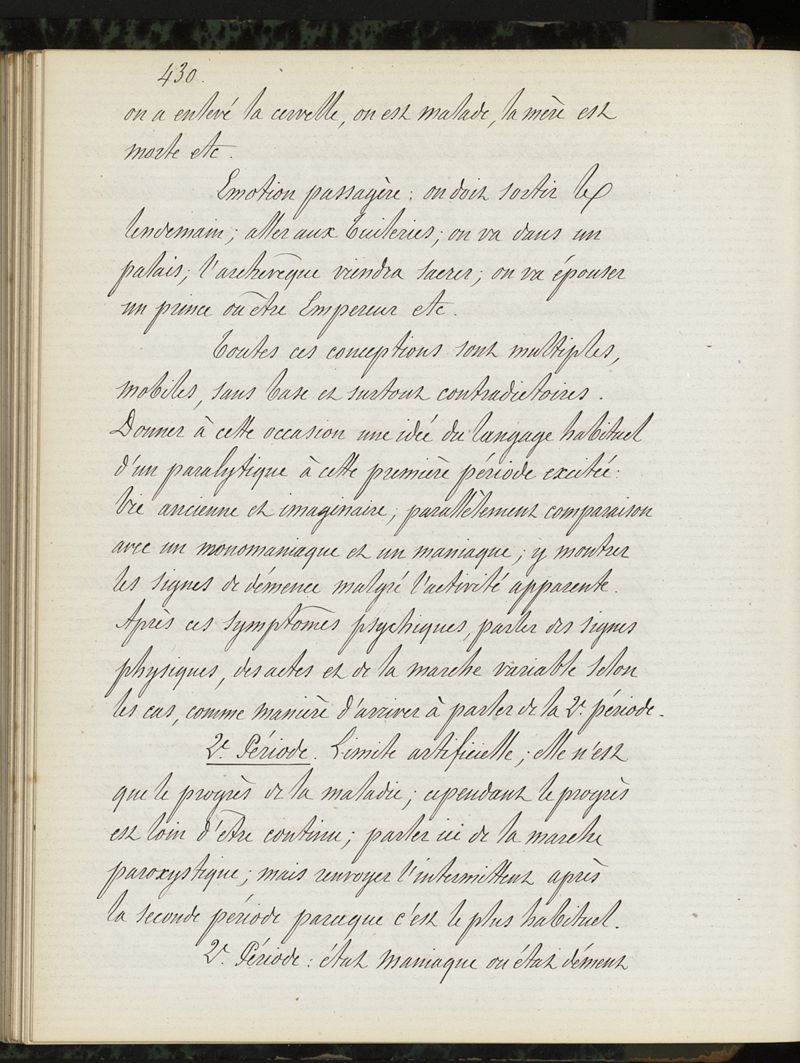 430.
on a enlevé la cervelle, on est malade, la mère est
morte etc.
Emotion passagère : on doit sortir le
lendemain ; aller aux Tuileries ; on va dans un
palais ; l'archevêque viendra sacrer ; on va épouser
un prince ou être Empereur etc.
Toutes ces conceptions sont multiples,
mobiles, sans base et surtout contradictoires.
Donner à cette occasion une idée du langage habituel
d'un paralytique à cette première période excitée :
Vie ancienne et imaginaire ; parallèlement comparaison
avec un monomaniaque et un maniaque ; y montrer
les signes de démence malgré l'activité apparente.
Après ces symptômes psychiques, parler des signes
physiques, des actes et de la marche variable selon
les cas, comme manière d'arriver à parler de la 2e période.
2e Période. Limite artificielle ; elle n'est
que le progrès de la maladie ; cependant le progrès
est loin d'être continu ; parler ici de la marche
paroxystique ; mais renvoyer l'intermittent après
la seconde période parceque c'est le plus habituel.
2e Période : état maniaque ou état dément